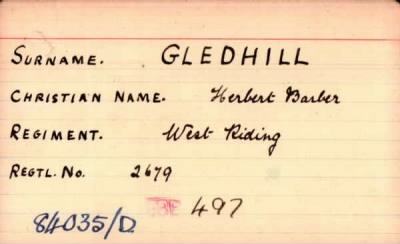 SURNAME. GLEDHILL
CHRISTIAN NAME. Herbert Barber
REGIMENT. West Riding
REGTL. No. 2679
497
84035/D.